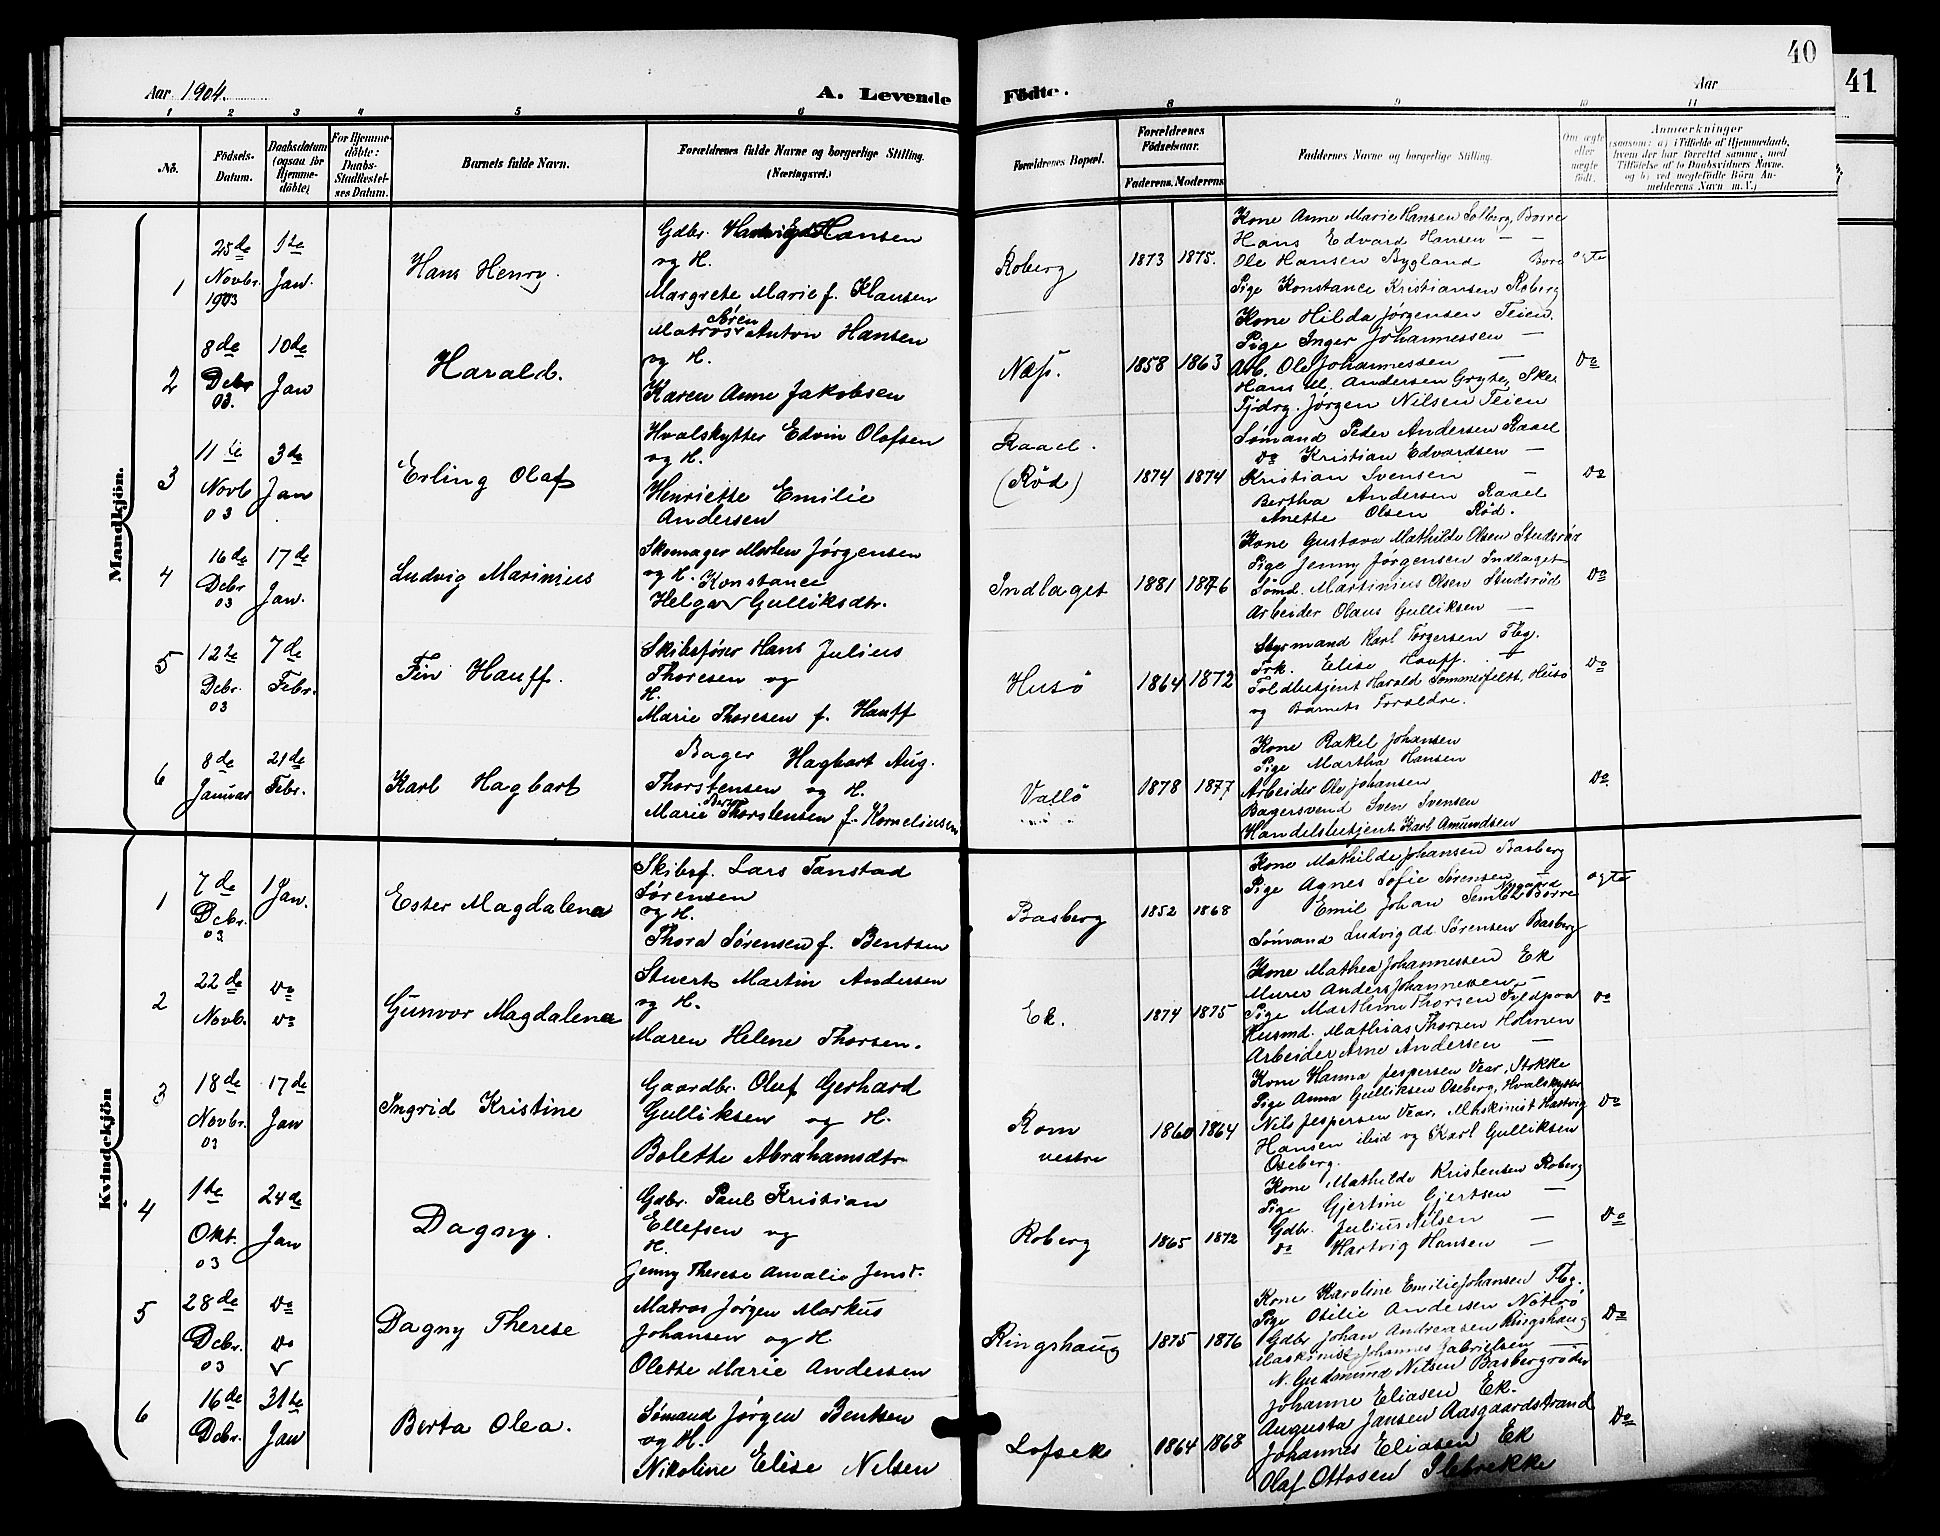 40
41
Aar 1904.
A. Levende Födte.
Aar
1 2 3 4 5 6 8 9 10 11
No.
Födsels-Datum.
Daabsdatum (ogsaa for Hjemmedöbte)
For Hjemmedöbte: Daabs-Stadfæstelsens Datum.
Barnets fulde Navn.
Forældrenes fulde Navne og borgerlige Stilling. (Næringsvei.)
Forældrenes Bopæl.
Forældrenes Födselsaar.
Faderens. Moderens
Faddernes Navne og borgerlige Stilling.
Om ægte eller uægte födt.
Anmærkninger
saasom: a) i Tilfælde af Hjemmedaab, hvem der har forrettet samme, med Tilföielse af to Daabsvidners Navne. og b) ved uægtefödte Börn Anmelderens Navn m. V.)
Mandkjön.
1
25de Novbr. 1903
1ste Jan.
Hans Henry.
Gdbr. Hansen
og H.
Margrete Marie f. Hansen
Roberg
1873 1875.
Kone Anne Marie Hansen Solberg, Borre
Hans Edvard Hansen — —
Ole Hansen Bygland Borre
Pige Konstance Kristiansen Roberg
ægte
2
8de Debr 03.
10de Jan
Harald.
Matros Søren Anton Hansen
og H.
Karen Anne Jakobsen
Næs.
1858 1863
Kone Hilda Jørgensen Teien.
Pige Inger Johannessen —
Arb. Ole Johannessen —
Hans M. Andersen Gryte, Ske
Jørgen Nilsen Teien
do
3
11te Novb 03
3de Jan
Erling Olaf
Hvalskytter Edvin Olafsen
og H.
Henriette Emilie
Andersen
Raael.
(Rød)
1874 1874
Sømand Peder Andersen Raael
do Kristian Edvardsen —
Kristian Svensen —
Bertha Andersen Raael
Anette Olsen Rød.
do
4
16de Debr 03
17de Jan.
Ludvig Marinius
Skomager Morten Jørgensen
og H. Konstance
Helga Gulliksdtr.
Indlaget
1881 1876
Kone Gustava Mathilde Olsen Studsrød
Pige Jenny Jørgensen Indlaget
Sømd. Martinius Olsen Studsrød
Arbeider Olaus Gulliksen —
do
5
12te Debr. 03
7de Febr.
Fin Hauff.
Skibsfører Hans Julius
Thoresen og
H.
Marie Thoresen f. Hauff
Husø
1864 1872
Styrmand Karl Torgersen Tbg.
Frk. Elise Hauff. —
Toldbetjent Harald Sommerfeldt, Husø
og Barnets Forældre.
do
6
8de Januar
21de Febr.
Karl Hagbart
Bager Hagbart Aug.
Thorstensen og H.
Marie Thorstensen f. Korneliusen
Vallø
1878 1877
Kone Rakel Johansen
Pige Martha Hansen
Arbeider Ole Johansen
Bagersvend Sven Svensen
Handelsbetjent Karl Amundsen
do
Kvindekjön
1
7de Debr. 03
1 Jan.
Ester Magdalena
Skibsf. Lars Tanstad
Sørensen
og H.
Thora Sørensen f. Bentsen
Basberg
1852 1868
Kone Mathilde Johansen Basberg
Pige Agnes Sofie Sørensen —
Emil Johan Borre
Sømand Ludvig Ad Sørensen Basberg
ægte
2
22de Novb.
do do
Gunvor Magdalena
Stuert Martin Andersen
og H.
Maren Helene Thorsen.
Ek.
1874 1875
Kone Mathea Johannessen Ek
Murer Anders Johannessen —
Pige Marthine Thorsen
Husmd. Mathias Thorsen Holmen
Arbeider Arne Andersen —
do
3
18de Novbr. 03
17de Jan
Ingrid Kristine
Gaardbr. Oluf Gerhard
Gulliksen og H.
Bolette Abrahamsdtr
Rom
vestre
1860 1864
Kone Hanna Jespersen Vear, Stokke
Pige Anna Gulliksen Oseberg, Hvalskytter
Nils Jespersen Vear, Maskinist Hartvig
Hansen ibid og Karl Gulliksen
Oseberg.
do
4
1ste Okt. 03
24de Jan
Dagny.
Gdbr. Paul Kristian
Ellefsen og
H.
Jenny Therese Amalie Jensd.
Roberg
1865 1872
Kone Mathilde Kristensen Roberg
Pige Gjertine Gjertsen —
Gdbr. Julius Nilsen —
do Hartvig Hansen —
do
5
28de Debr. 03
do do
Dagny Therese
Matros Jørgen Markus
Johansen og H
Olette Marie Andersen
Ringshaug
1875 1876
Kone Karoline Emilie Johansen Tbg.
Pige Otilie Andersen Nøterø
Gdbr Johan Andreasen Ringshaug
Maskinist Johannes Gabrielsen —
N. Gudmund Nilsen Basbergrødn
do
6
16de Debr.
31te Jan
Berta Olea.
Sømand Jørgen Bentsen
og H.
Nikoline Elise Nilsen
Lofseke
1864 1868
Johanne Eliasen Ek.
Augusta Jansen Aasgaardstrand
Johannes Eliasen Ek
Olaf Ottosen
do